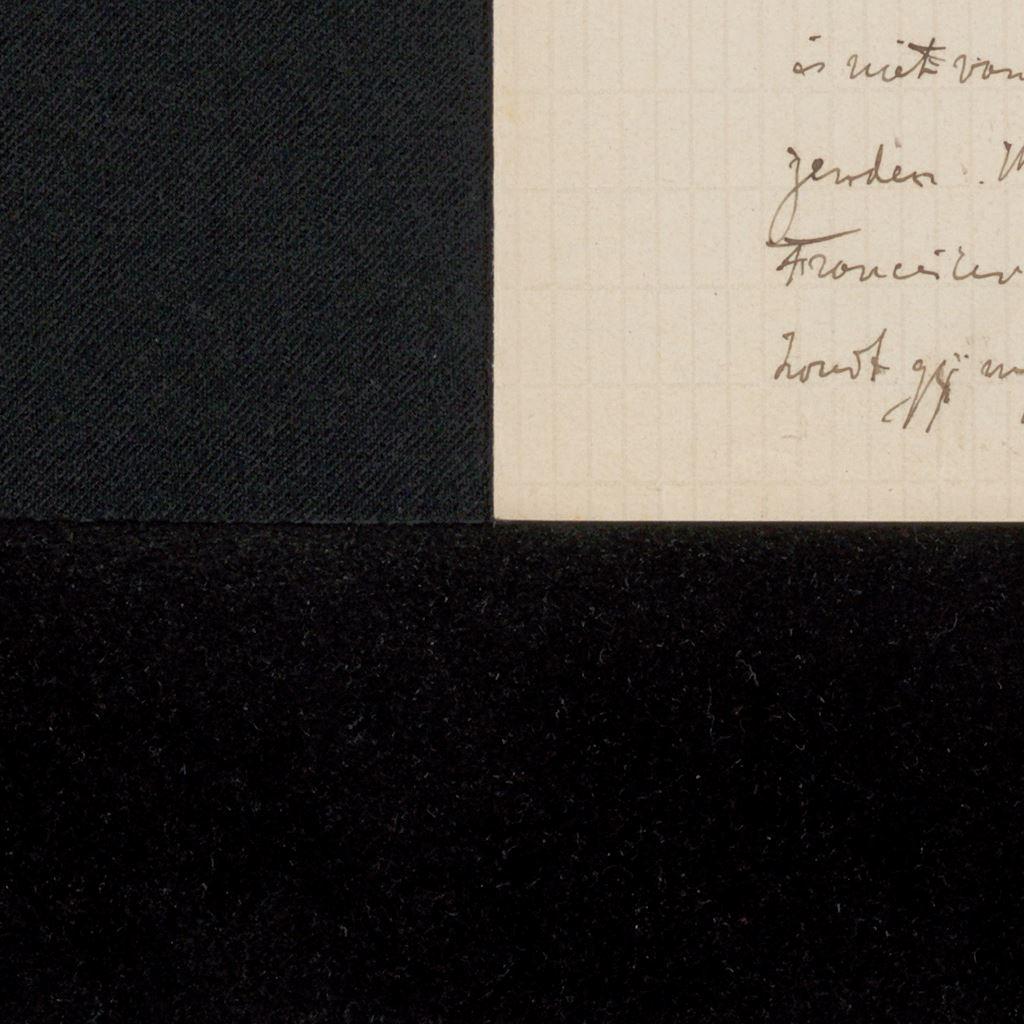 is niet van
zenden. M
Francisker
houdt gij m